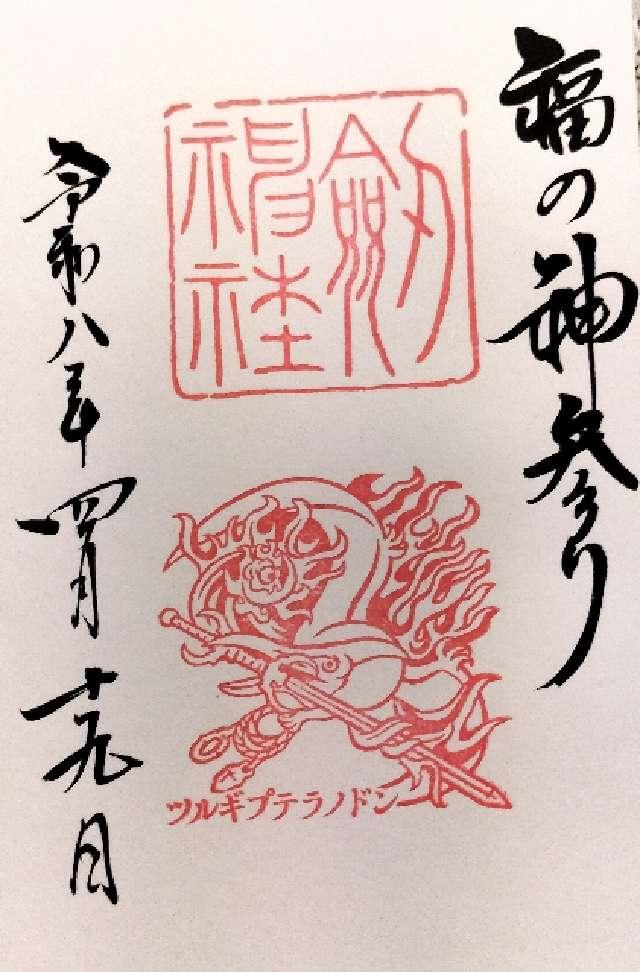 福の神参り
劔神社
ツルギプテラノドン
令和八年四月十九日